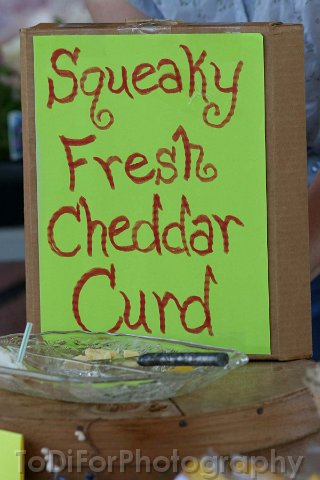 Squeaky
Fresh
Cheddar
Curd
ToDiForPhotography